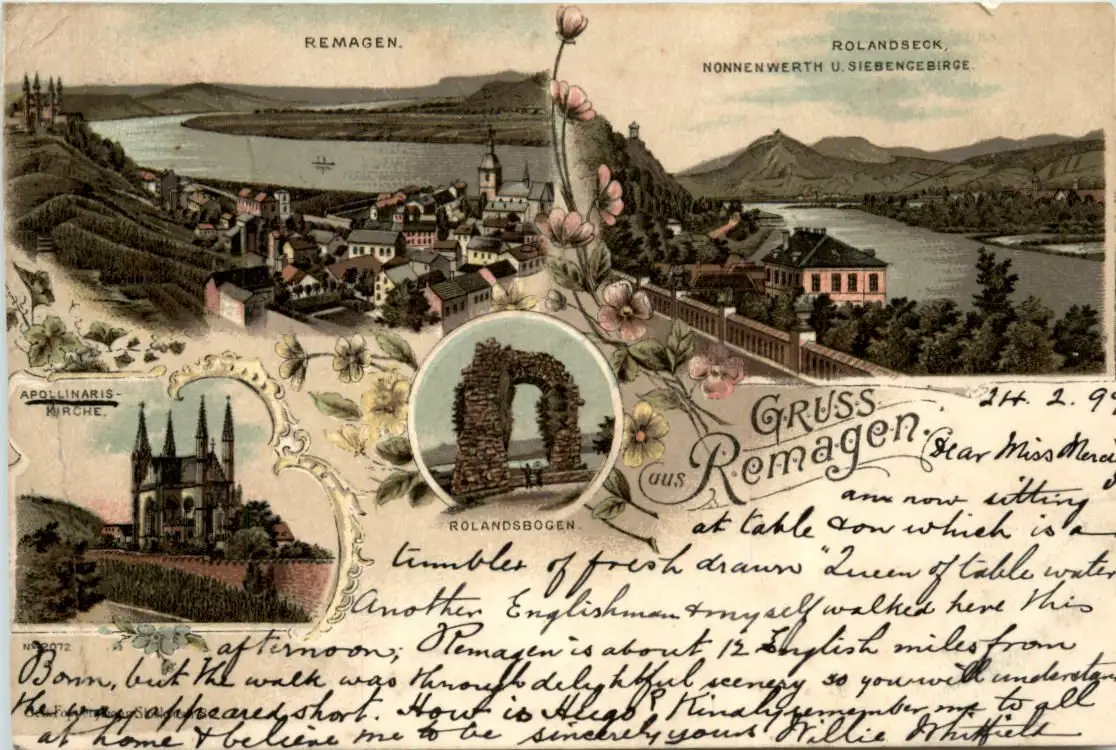 REMAGEN.
ROLANDSECK,
NONNENWERTH U. SIEBENGEBIRGE.
APOLLINARIS-
KIRCHE.
ROLANDSBOGEN.
GRUSS
aus Remagen.
24. 2. 9
Dear Miss
am now sitting
at table & on which is a
tumbler of fresh drawn "Queen of table water
Another Englishman & myself walked here this
afternoon; Remagen is about 12 English miles from
Bonn, but the walk was through delightful scenery so you will understan
the way appeared short. How is Hugo? Kindly remember me to all
at home & believe me to be sincerely yours Willie Whitfield
No 2072